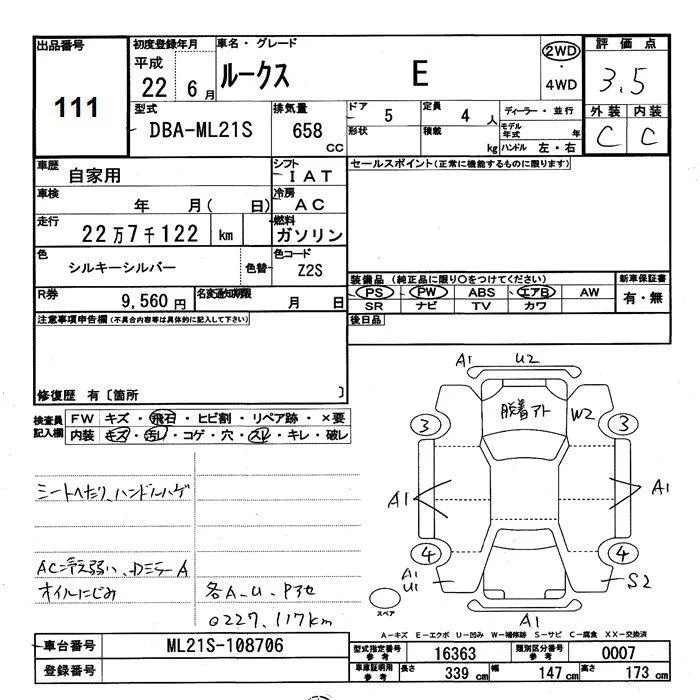 出品番号
111
初度登録年月
平成
22 年 6 月
車名・グレード
ルークス E
2WD
・
4WD
評価点
3.5
外装 内装
C C
型式
DBA-ML21S
排気量
658
CC
ドア 5
形状
定員 4 人
積載 kg
ディーラー・並行
モデル年式 年
ハンドル 左・右
車歴
自家用
シフト
IAT
セールスポイント(正常に機能するものに限ります)
車検
年 月( 日)
冷房
AC
走行
22万7千122 km
燃料
ガソリン
色
シルキーシルバー
色替
色コード
Z2S
R券
9,560円
名変通知期限
月 日
装備品(純正品に限り○をつけてください)
PS PW ABS エアB AW
SR ナビ TV カワ
新車保証書
有・無
後日品
注意事項申告欄(不具合内容等は具体的に記入して下さい)
修復歴 有〔箇所 〕
検査員
記入欄
FW キズ・飛石・ヒビ割・リペア跡・×要
内装 キズ・汚レ・コゲ・穴・スレ・キレ・破レ
シートへたり、ハンドルハゲ
AC冷え弱い、DミラーA
オイルにじみ
各A.U.Pアセ
0227.117km
A1 U2
脱着アト
W2
3 3
A1 A1
4 4
A1
U1
S2
A1
スペア
A-キズ E-エクボ U-凹み W-補修跡 S-サビ C-腐食 XX-交換済
車台番号
ML21S-108706
登録番号
型式指定番号
参考
16363
類別区分番号
参考
0007
車庫証明用
参考
長さ 339 cm 幅 147 cm 高さ 173 cm